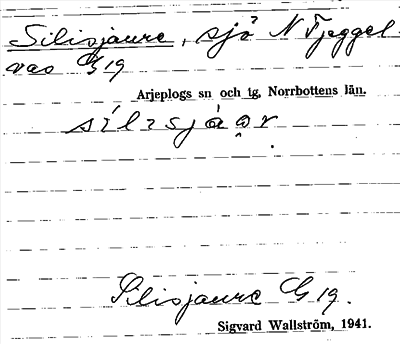 Silisjaure, sjö N Tjeggel
vas G 19
Arjeplogs sn och tg, Norrbottens län.
Silisjaure G 19.
Sigvard Wallström, 1941.